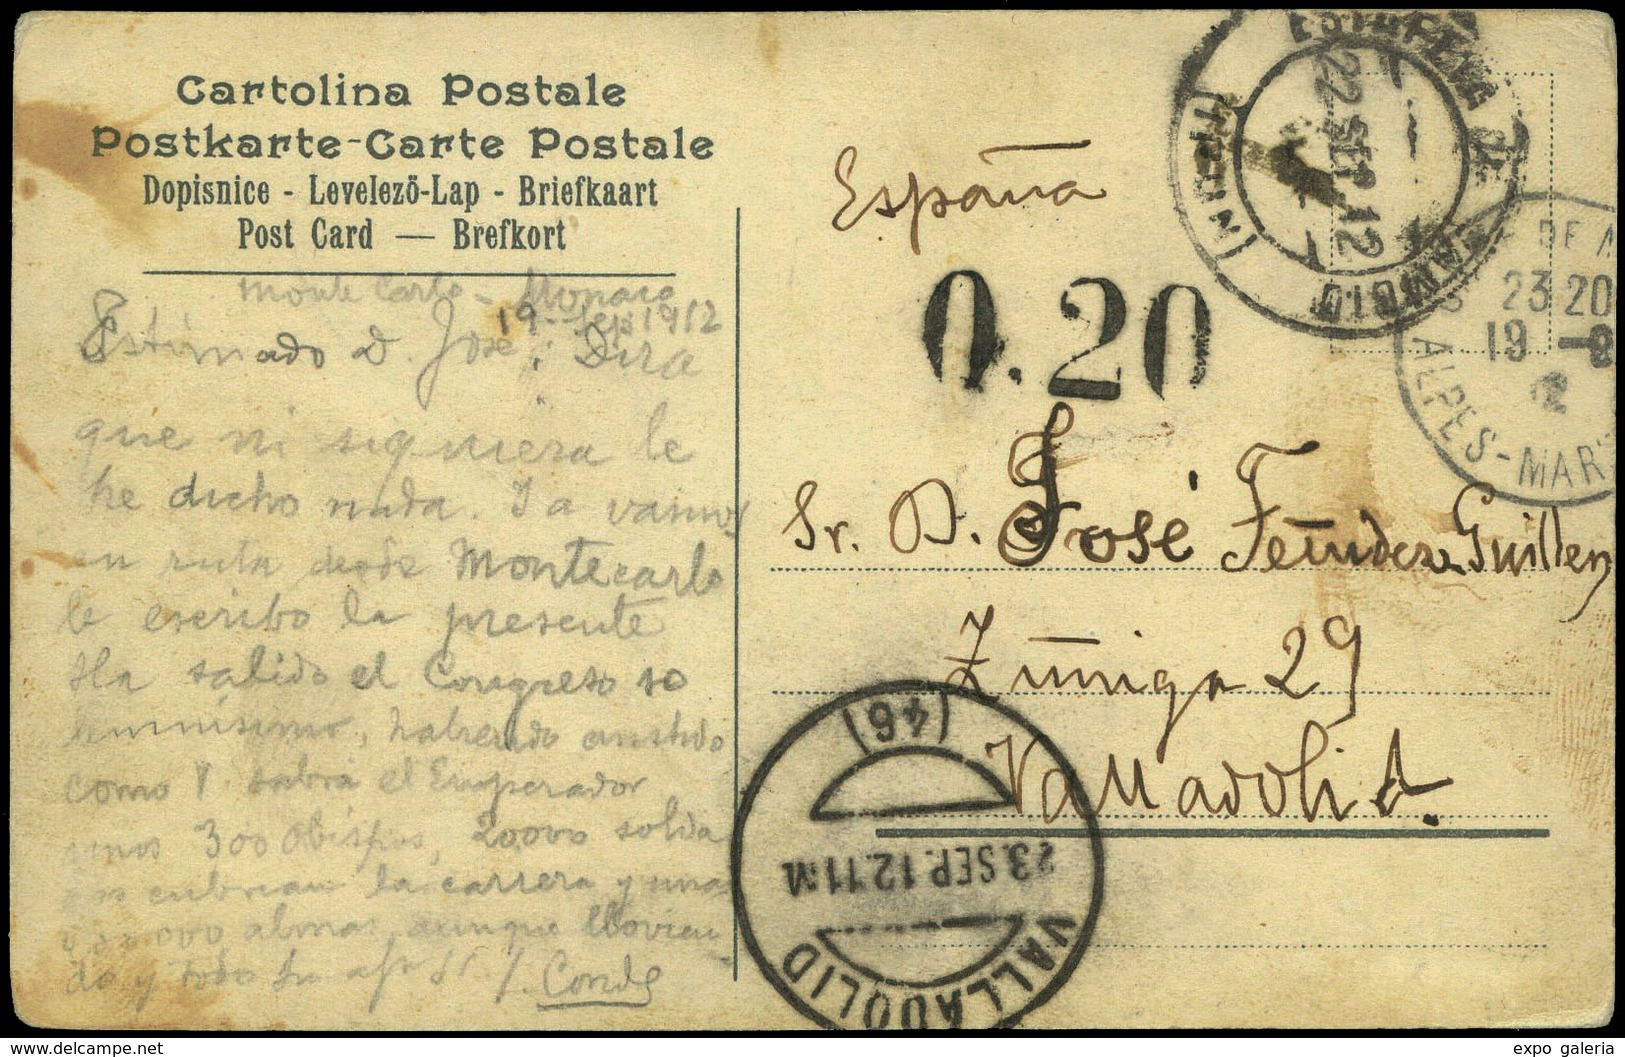 Cartolina Postale
Postkarte-Carte Postale
Dopisnice - Levelezö-Lap - Briefkaart
Post Card — Brefkort
Monte Carlo - Monaco
19 Sep 1912
Estimado D. José: Dira
que ni siquiera le
he dicho nada. Ya vamos
en ruta desde Montecarlo
le escribo la presente
Ha salido el Congreso so
lemnísimo, habiendo asistido
como V. sabrá el Emperador
unos 300 Obispos, 20000 solda
cubrian la carrera y una
000 almas, aunque llovien
do y todo su
Conde
España
0.20
Sr. D. José Fernndez Guillen
Zúñiga 29
Valladolid.
ESTAFETA DE CAMBIO
22 SEP. 12
(IRUN)
DE
23 20
19 -9
12
ALPES-MAR
(46)
23.SEP.12.11M
VALLADOLID
delcampe.net
expo galeria